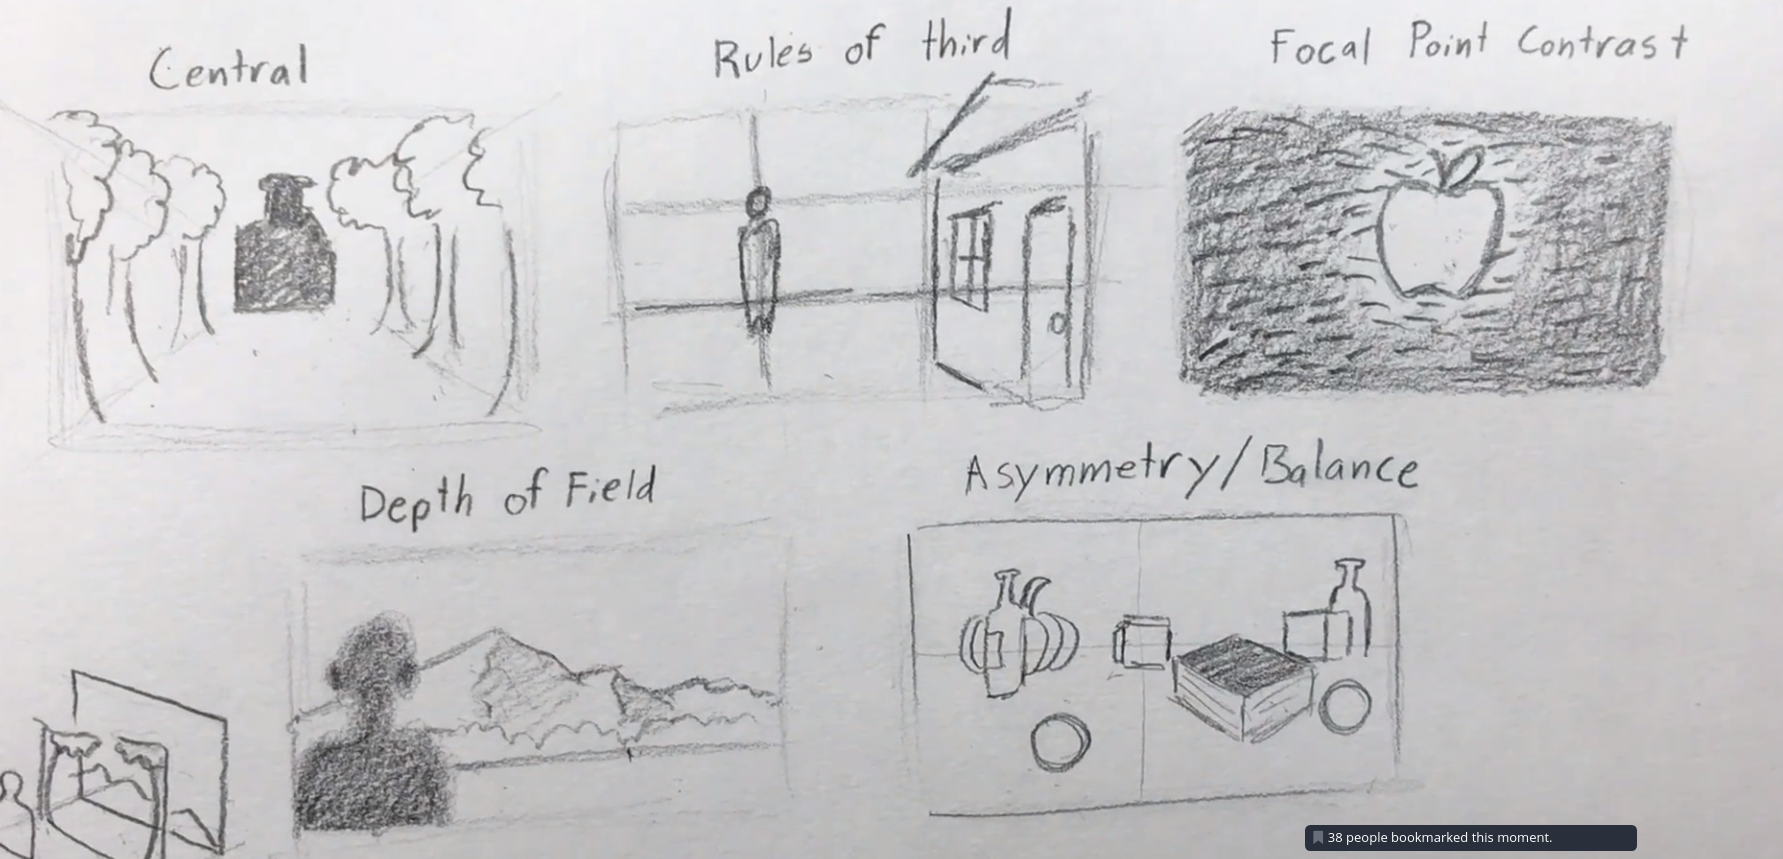 Central
Rules of third
Focal Point Contrast
Depth of Field
Asymmetry/Balance
38 people bookmarked this moment.